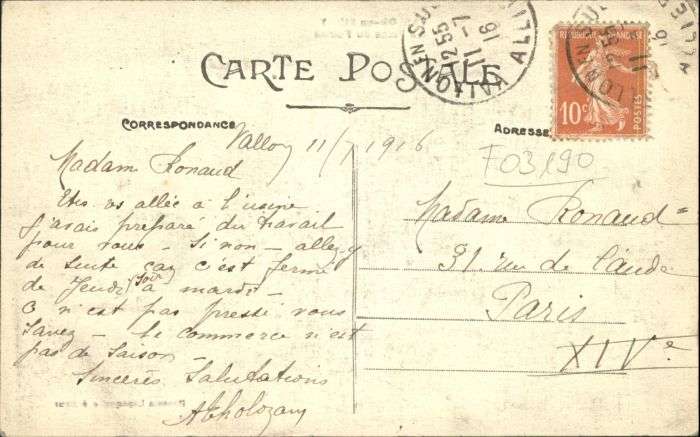 CARTE POSTALE
CORRESPONDANCE
ADRESSE
RÉPUBLIQUE FRANÇAISE
10c
POSTES
VALLON EN SULLY
ALLIER
12 55
11 - 7
16
F03190
11/7 1916
Madame Ronaud
Etes vs allée à l'usine
J'avais préparé du travail
pour vous - Si non - allez y
de suite car c'est fermé
de Jeudi Soir à mardi -
n'est pas pressé vous
Savez - le commerce n'est
pas de saison -
Sincères Salutations
Madame Ronaud
31 rue de l'aude
Paris
XIVe